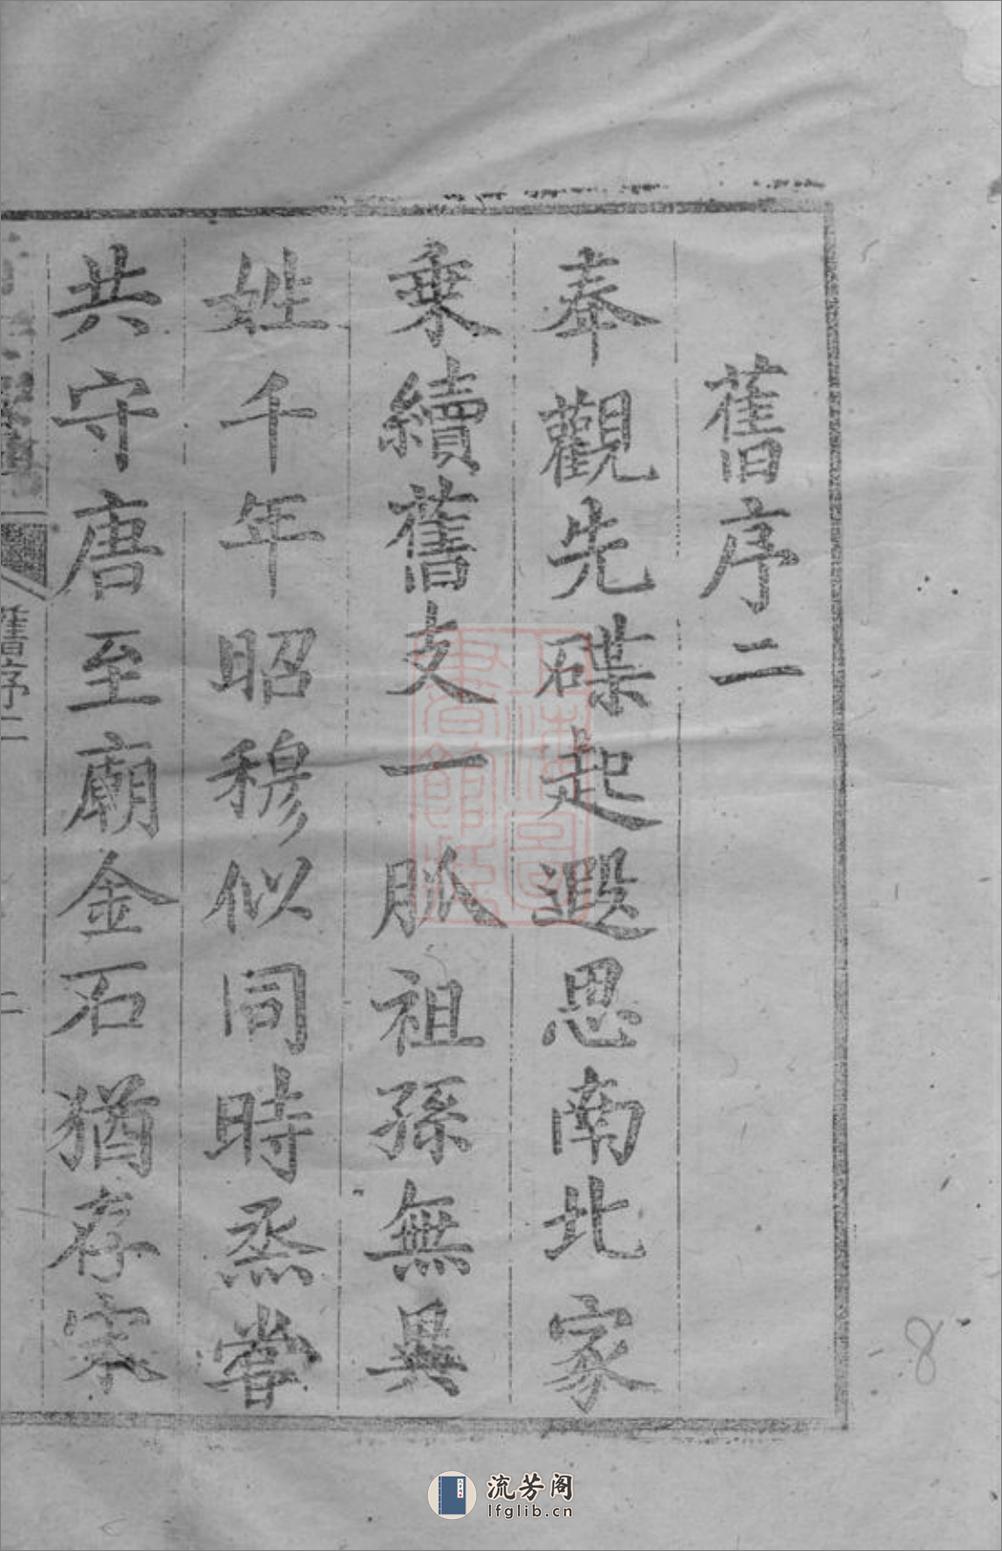 舊序二
奉觀先牒起遐思南北家
乗續舊支一脈祖孫無異
姓千年昭穆似同時烝嘗
共守唐至廟金石猶存宋
舊序二
二
8
流芳阁
lfglib.cn